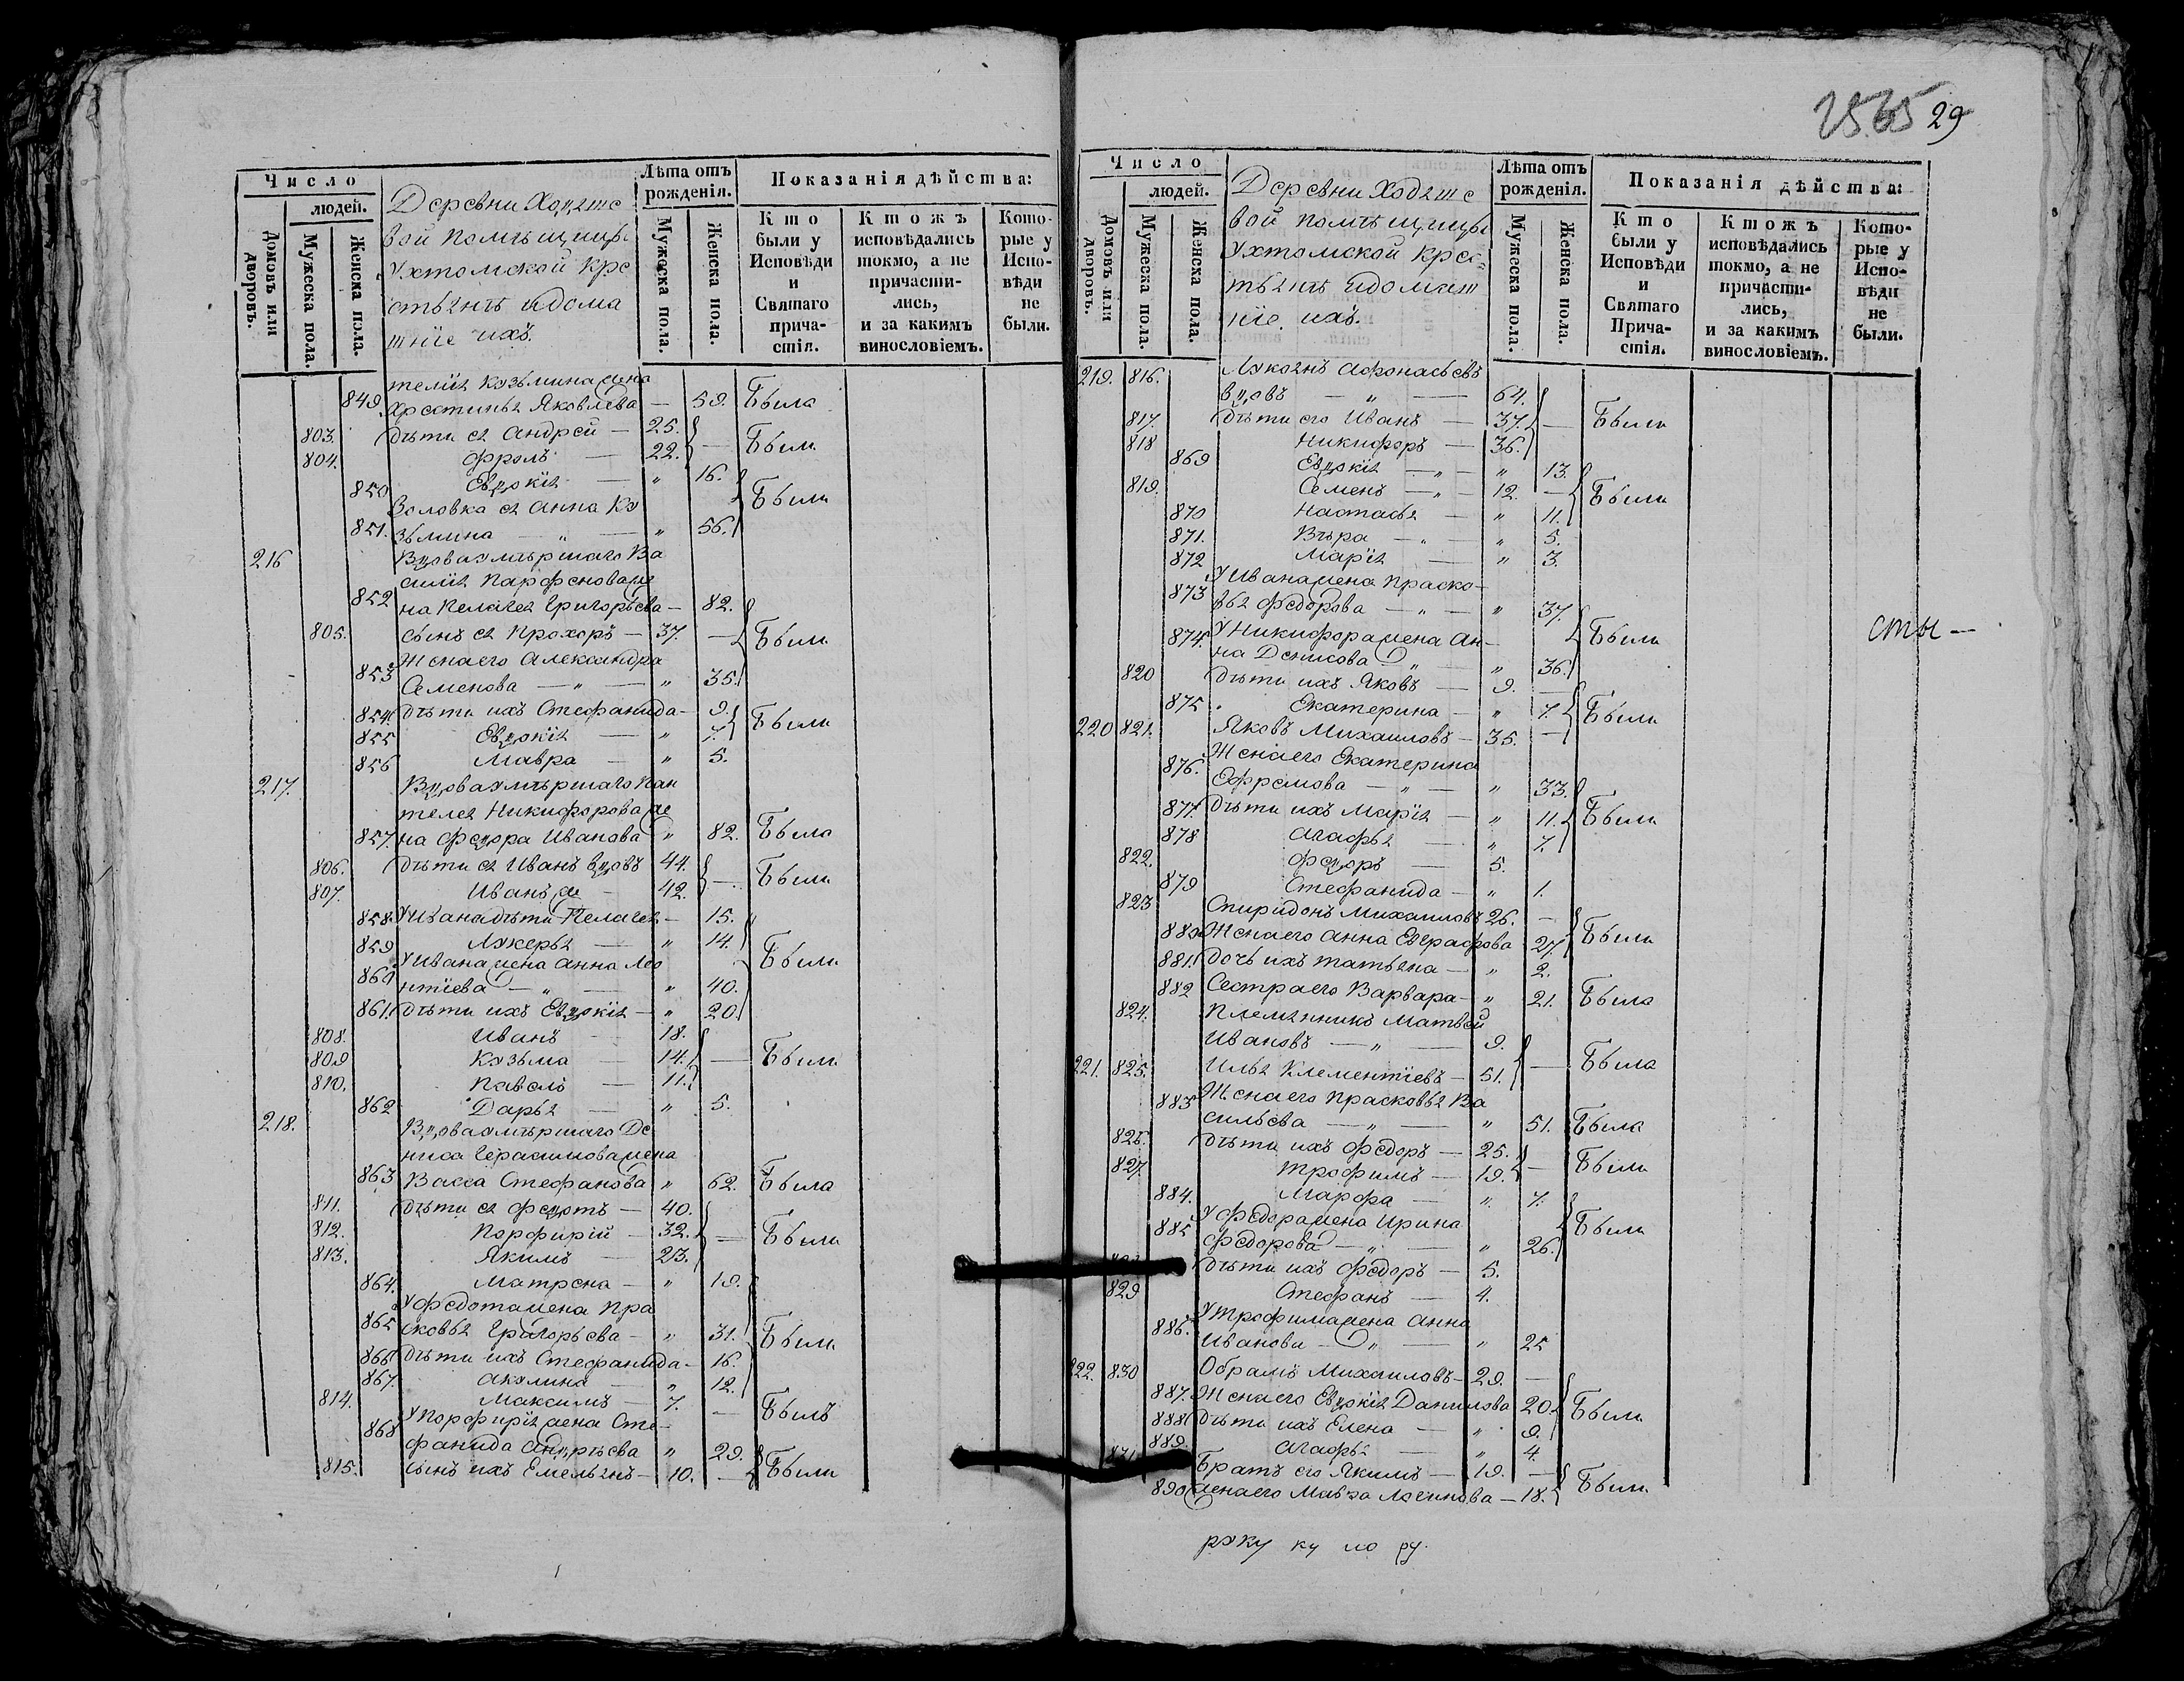 Число
людей.
Домовъ или дворовъ.
Мужеска пола.
Женска пола.
Деревни Ходяше
вой помѣщицы
Ухтомской Кре
стьянъ идома
шніе ихъ.
Лѣта отъ рожденія.
Мужеска пола.
Женска пола.
Показанія дѣйства:
Кто были у Исповѣди и Святаго прича- стія.
Ктожъ исповѣдались токмо, а не причасти- лись, и за какимъ винословіемъ.
Кото- рые у Испо- вѣди не были.
телія Козьмина жена
849. Хрестинья Яковлева — 59. Была
803. дѣти ея Андрей — 25.
804. Фролъ — 22. — Были
850 Евдокія — " 16.
Золовка ея Анна Ку Были
851. зьмина — " — " 56.
216 Вдоваумѣршаго Ва
силія Парфеноваже
852 на Пелагея Григорьева — 82.
805. сынъ ея Прохоръ — 37. — Были
Женаего Александра
853 Семенова — " — " 35.
854. дѣти ихъ Стефанида — 9.
855 Евдокія — " 7. Были
856 Мавра — " 5.
217. Вдоваумѣршаго Пан
телея Никифороваже
857. на Федора Иванова " 82. Была
806. дѣти ея Иванъ вдовъ 44.
807. Иванъ же — 42. — Были
858. УИванадѣти Пелагея — 15.
859 Лукерья — " 14.
УИванажена Анна Лео Были
860 нтіева — " — " 40.
861. дѣти ихъ Евдокія — " 20.
808. Иванъ — 18.
809 Козьма — 14. — Были
810. Павелъ — 11.
862 Дарья — " 5.
218. Вдоваумѣршаго Де
ниса Герасимоважена
863 Васса Стефанова " 62. Была
811. дѣти ея Федотъ — 40.
812. Порфирій — 32. — Были
813. Якимъ — 23.
864. Матрена — " 19.
УФедотажена Пра
865 сковья Григорьева — " 31. Были
866 дѣти ихъ Стефанида — 16.
867. Акулина — " 12.
814. Максимъ — 7. — Былъ
УПорфирія жена Сте-
868 фанида Андрѣева " 29.
815. Сынъ ихъ Емельянъ — 10. — Были
29
Число
людей.
Домовъ или дворовъ.
Мужеска пола.
Женска пола.
Деревни Ходяше
вой помѣщицы
Ухтомской Крес
тьянъ идомаш
ніе ихъ.
Лѣта отъ рожденія.
Мужеска пола.
Женска пола.
Показанія дѣйства:
Кто были у Исповѣди и Святаго Прича- стія.
Ктожъ исповѣдались токмо, а не причасти- лись, и за какимъ винословіемъ.
Кото- рые у Испо- вѣди не были.
219. 816. Лукоянъ Афонасьевъ
вдовъ — " — 64.
817. дѣти его Иванъ — 37. — Были
818 Никифоръ — 36.
869 Евдокія — " — " 13.
819. Семенъ — " — 12. — Были
870 Настасья — " 11.
871. Вѣра — " — " 5.
872 Марія — " 3.
УИванажена Праско-
873 вья Федорова — " — " 37.
874. УНикифоражена Ан- Были
на Денисова — " — " 36.
820 дѣти ихъ Яковъ — 9. —
875 Екатерина — " 7. Были
220 821. Яковъ Михаиловъ — 35. —
Женаего Екатерина
876. Ефремова — " — " 33.
877. дѣти ихъ Марія — " 11. Были
878 Агафья — " 7.
822. Федоръ — 5.
879 Стефанида — " 1.
823 Спиридонъ Михаиловъ 26. —
880 Женаего Анна Евграфова 27. Были
881. дочь ихъ Татьяна — " 2.
882 Сестраего Варвара — " 21. Была
824. Племянникъ Матвей
Ивановъ — " — 9.
221. 825. Илья Клементіевъ — 51. — Была
883 Женаего Прасковья Ва
сильева — " — " 51. Была
826. дѣти ихъ Федоръ — 25.
827. Трофимъ — 19. — Были
884. Марфа — " 7.
885 УФедоражена Ирина Были
Федорова — " — " 26.
дѣти ихъ Федоръ — 5.
829 Стефанъ — 4.
886. УТрофимажена Анна
Иванова — " — " 25
222. 830 Обрамъ Михаиловъ — 29. —
887. Женаего Евдокія Данилова 20. Были
888 дѣти ихъ Елена — " 9.
889. Агафья — " 4.
831 Братъ его Якимъ — 19. —
890 женаего Мавра Логинова — 18. Были
сты —